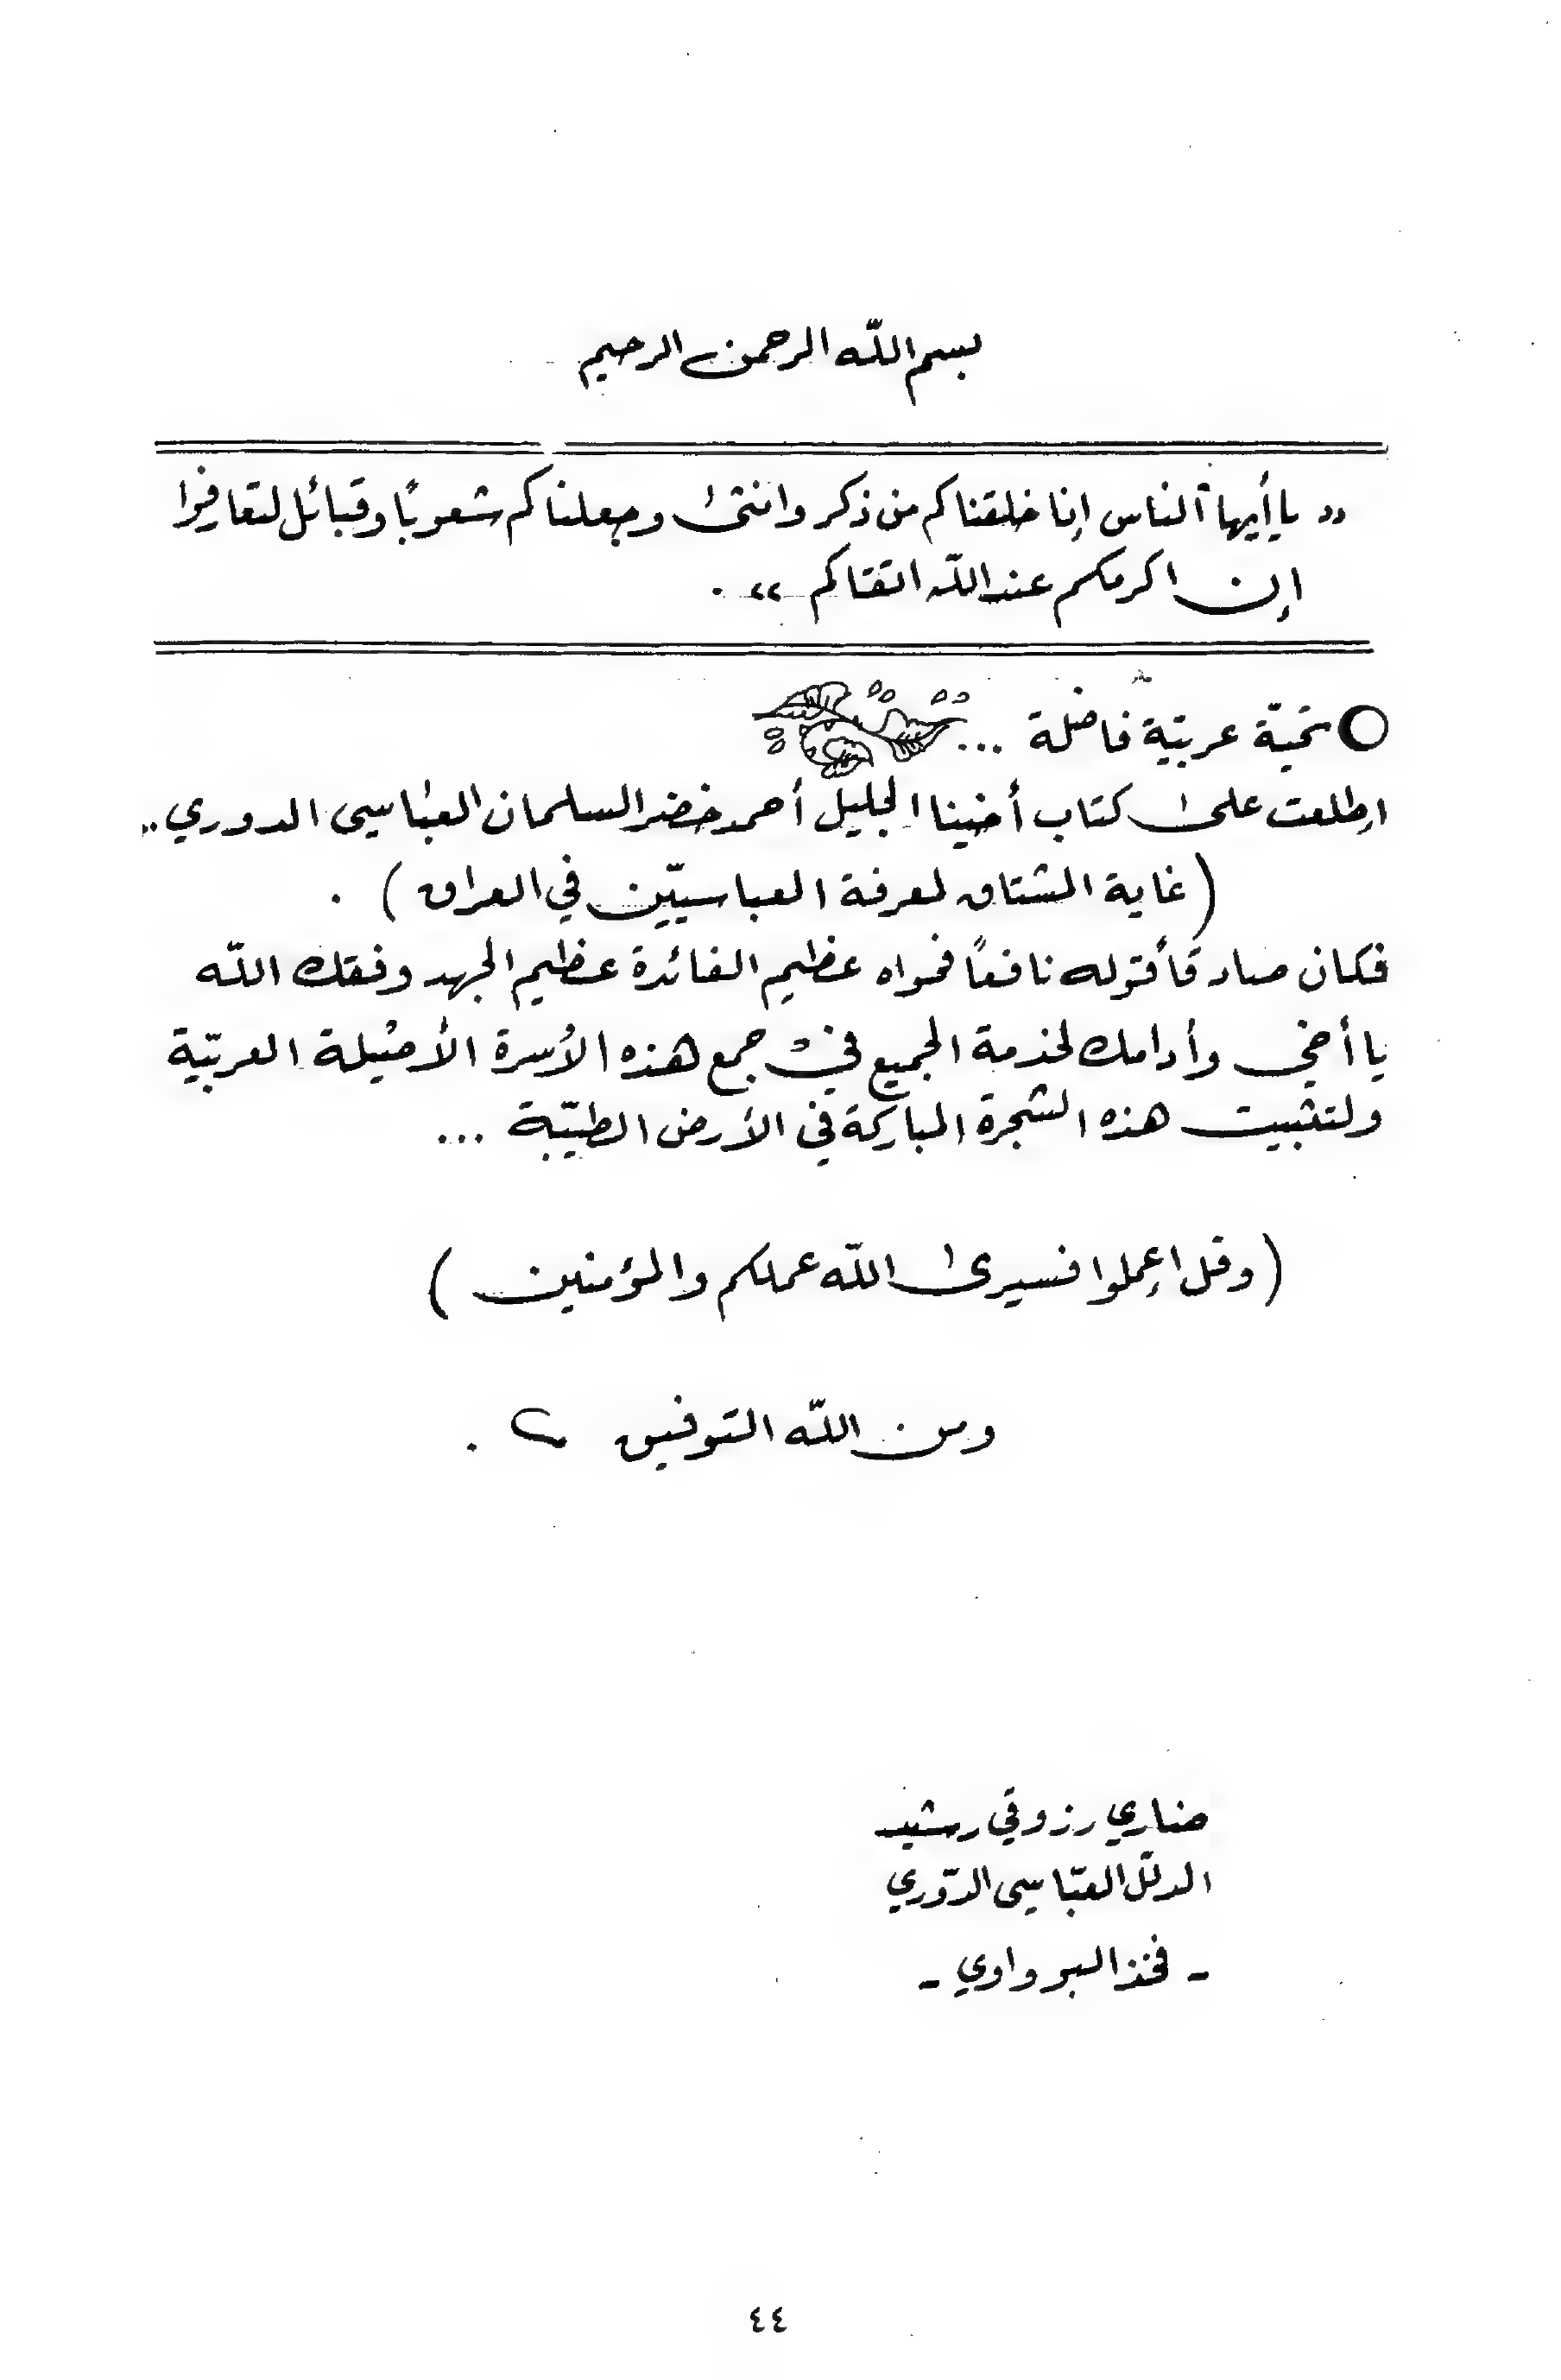 بسم الله الرحمن الرحيم
" ياأيها الناس إنا خلقناكم من ذكر وانثى وجعلناكم شعوبًا وقبائل لتعارفوا
إن اكرمكم عند الله اتقاكم " .
تحيّة عربيّة فاضلة ...
اطلعت على كتاب أخينا الجليل أحمد خضر السلمان العباسي الدوري ..
( غاية المشتاق لمعرفة العباسيّين في العراق ) .
فكان صادقاً قوله نافعاً فحواه عظيم الفائدة عظيم الجهد وفقك الله
يا أخي وأدامك لخدمة الجميع في جمع هذه الأسرة الأصيلة العربيّة
ولتثبيت هذه الشجرة المباركة في الأرض الطيّبة ...
( وقل إعملوا فسيرى الله عملكم والمؤمنين )
ومن الله التوفيق .
رزوقي رشيد
العبّاسي الدّوري
- فخذ البو واوي -
٤٤